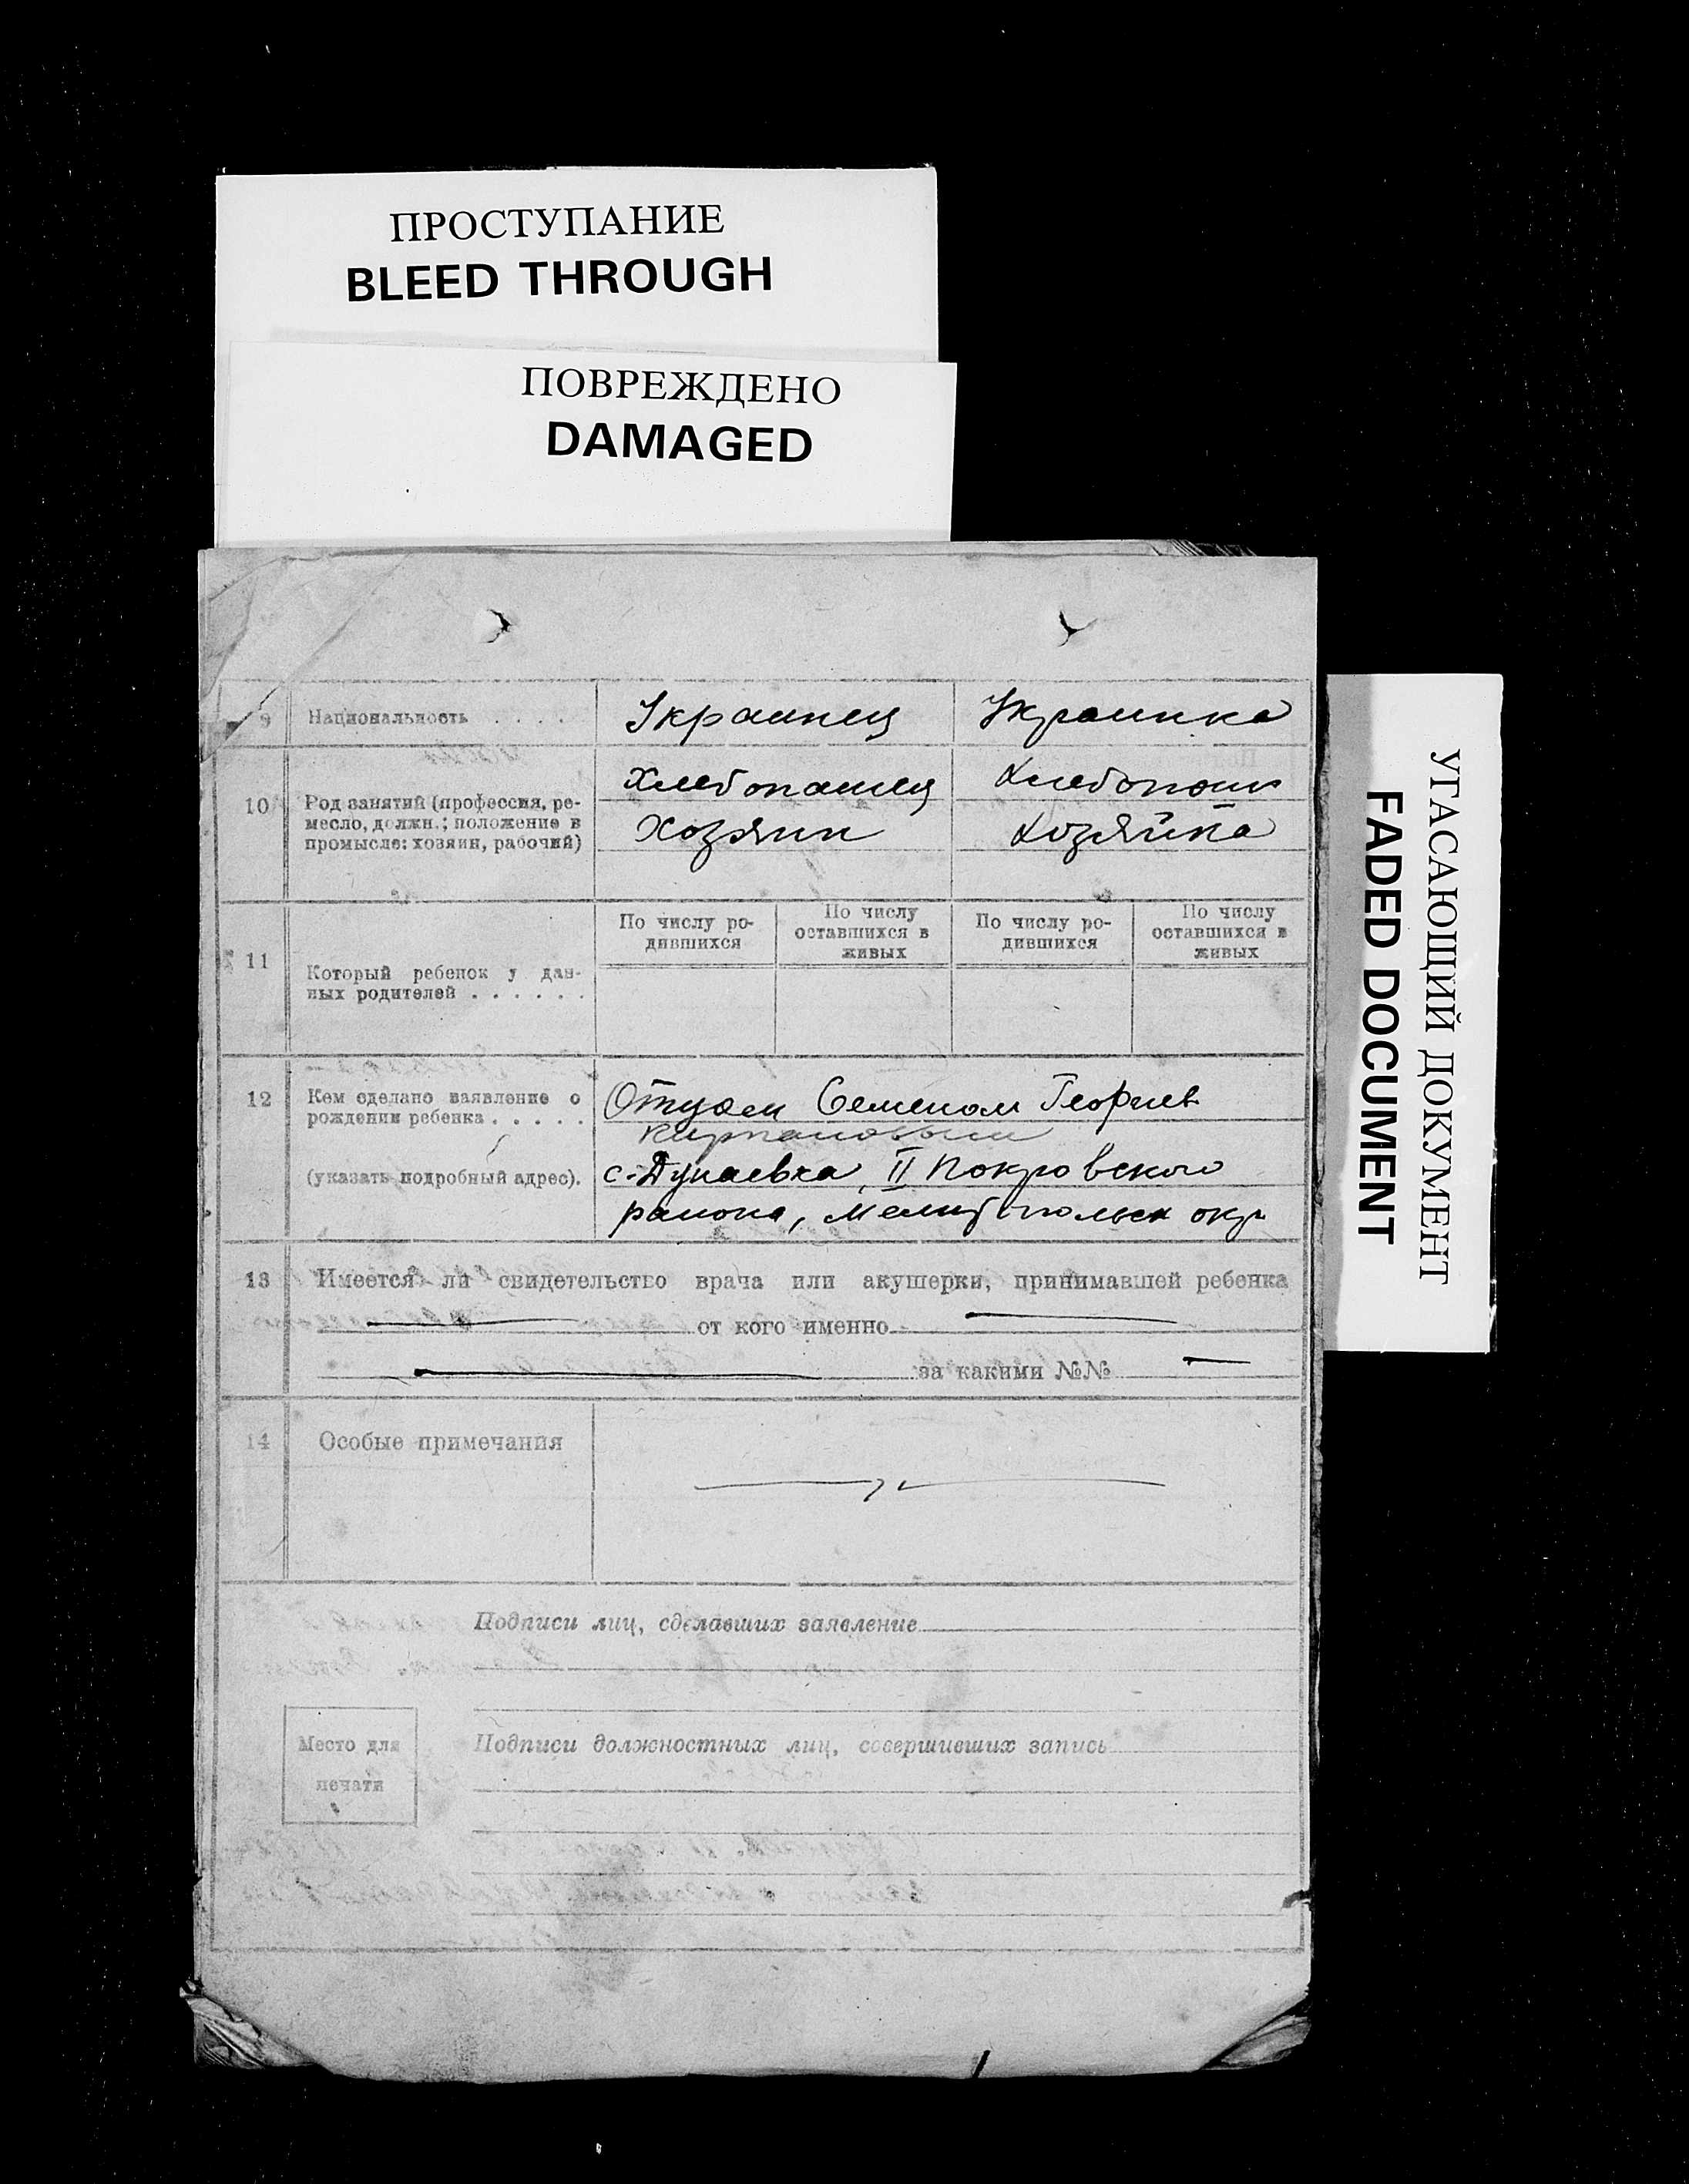 ПРОСТУПАНИЕ
BLEED THROUGH
ПОВРЕЖДЕНО
DAMAGED
УГАСАЮЩИЙ ДОКУМЕНТ
FADED DOCUMENT
9 Национальность . . . . Украинец Украинка
10 Род занятий (профессия, ре-
месло, должн.; положение в
промысле: хозяин, рабочий)
Хлебопашец Хлебопаш
Хозяин Хозяйка
11 Который ребенок у дан-
ных родителей . . . . . .
По числу ро-
дившихся
По числу
оставшихся в
живых
По числу ро-
дившихся
По числу
оставшихся в
живых
12 Кем сделано заявление о
рождении ребенка . . . . .
(указать подробный адрес).
Отцом Семеном Георгиев
с. Дунаевка, II Покровского
района, Мелитопольск окр
13 Имеется ли свидетельство врача или акушерки, принимавшей ребенка
— от кого именно —
— за какими №№ —
14 Особые примечания
Подписи лиц, сделавших заявление
Место для
печати
Подписи должностных лиц, совершивших запись